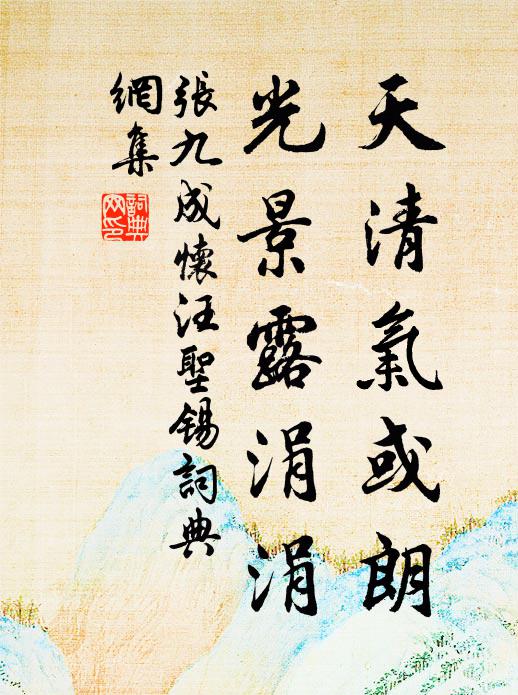 天清氣或朗
光景露涓涓
張九成懷汪聖錫詞典
網集
詞典
网印